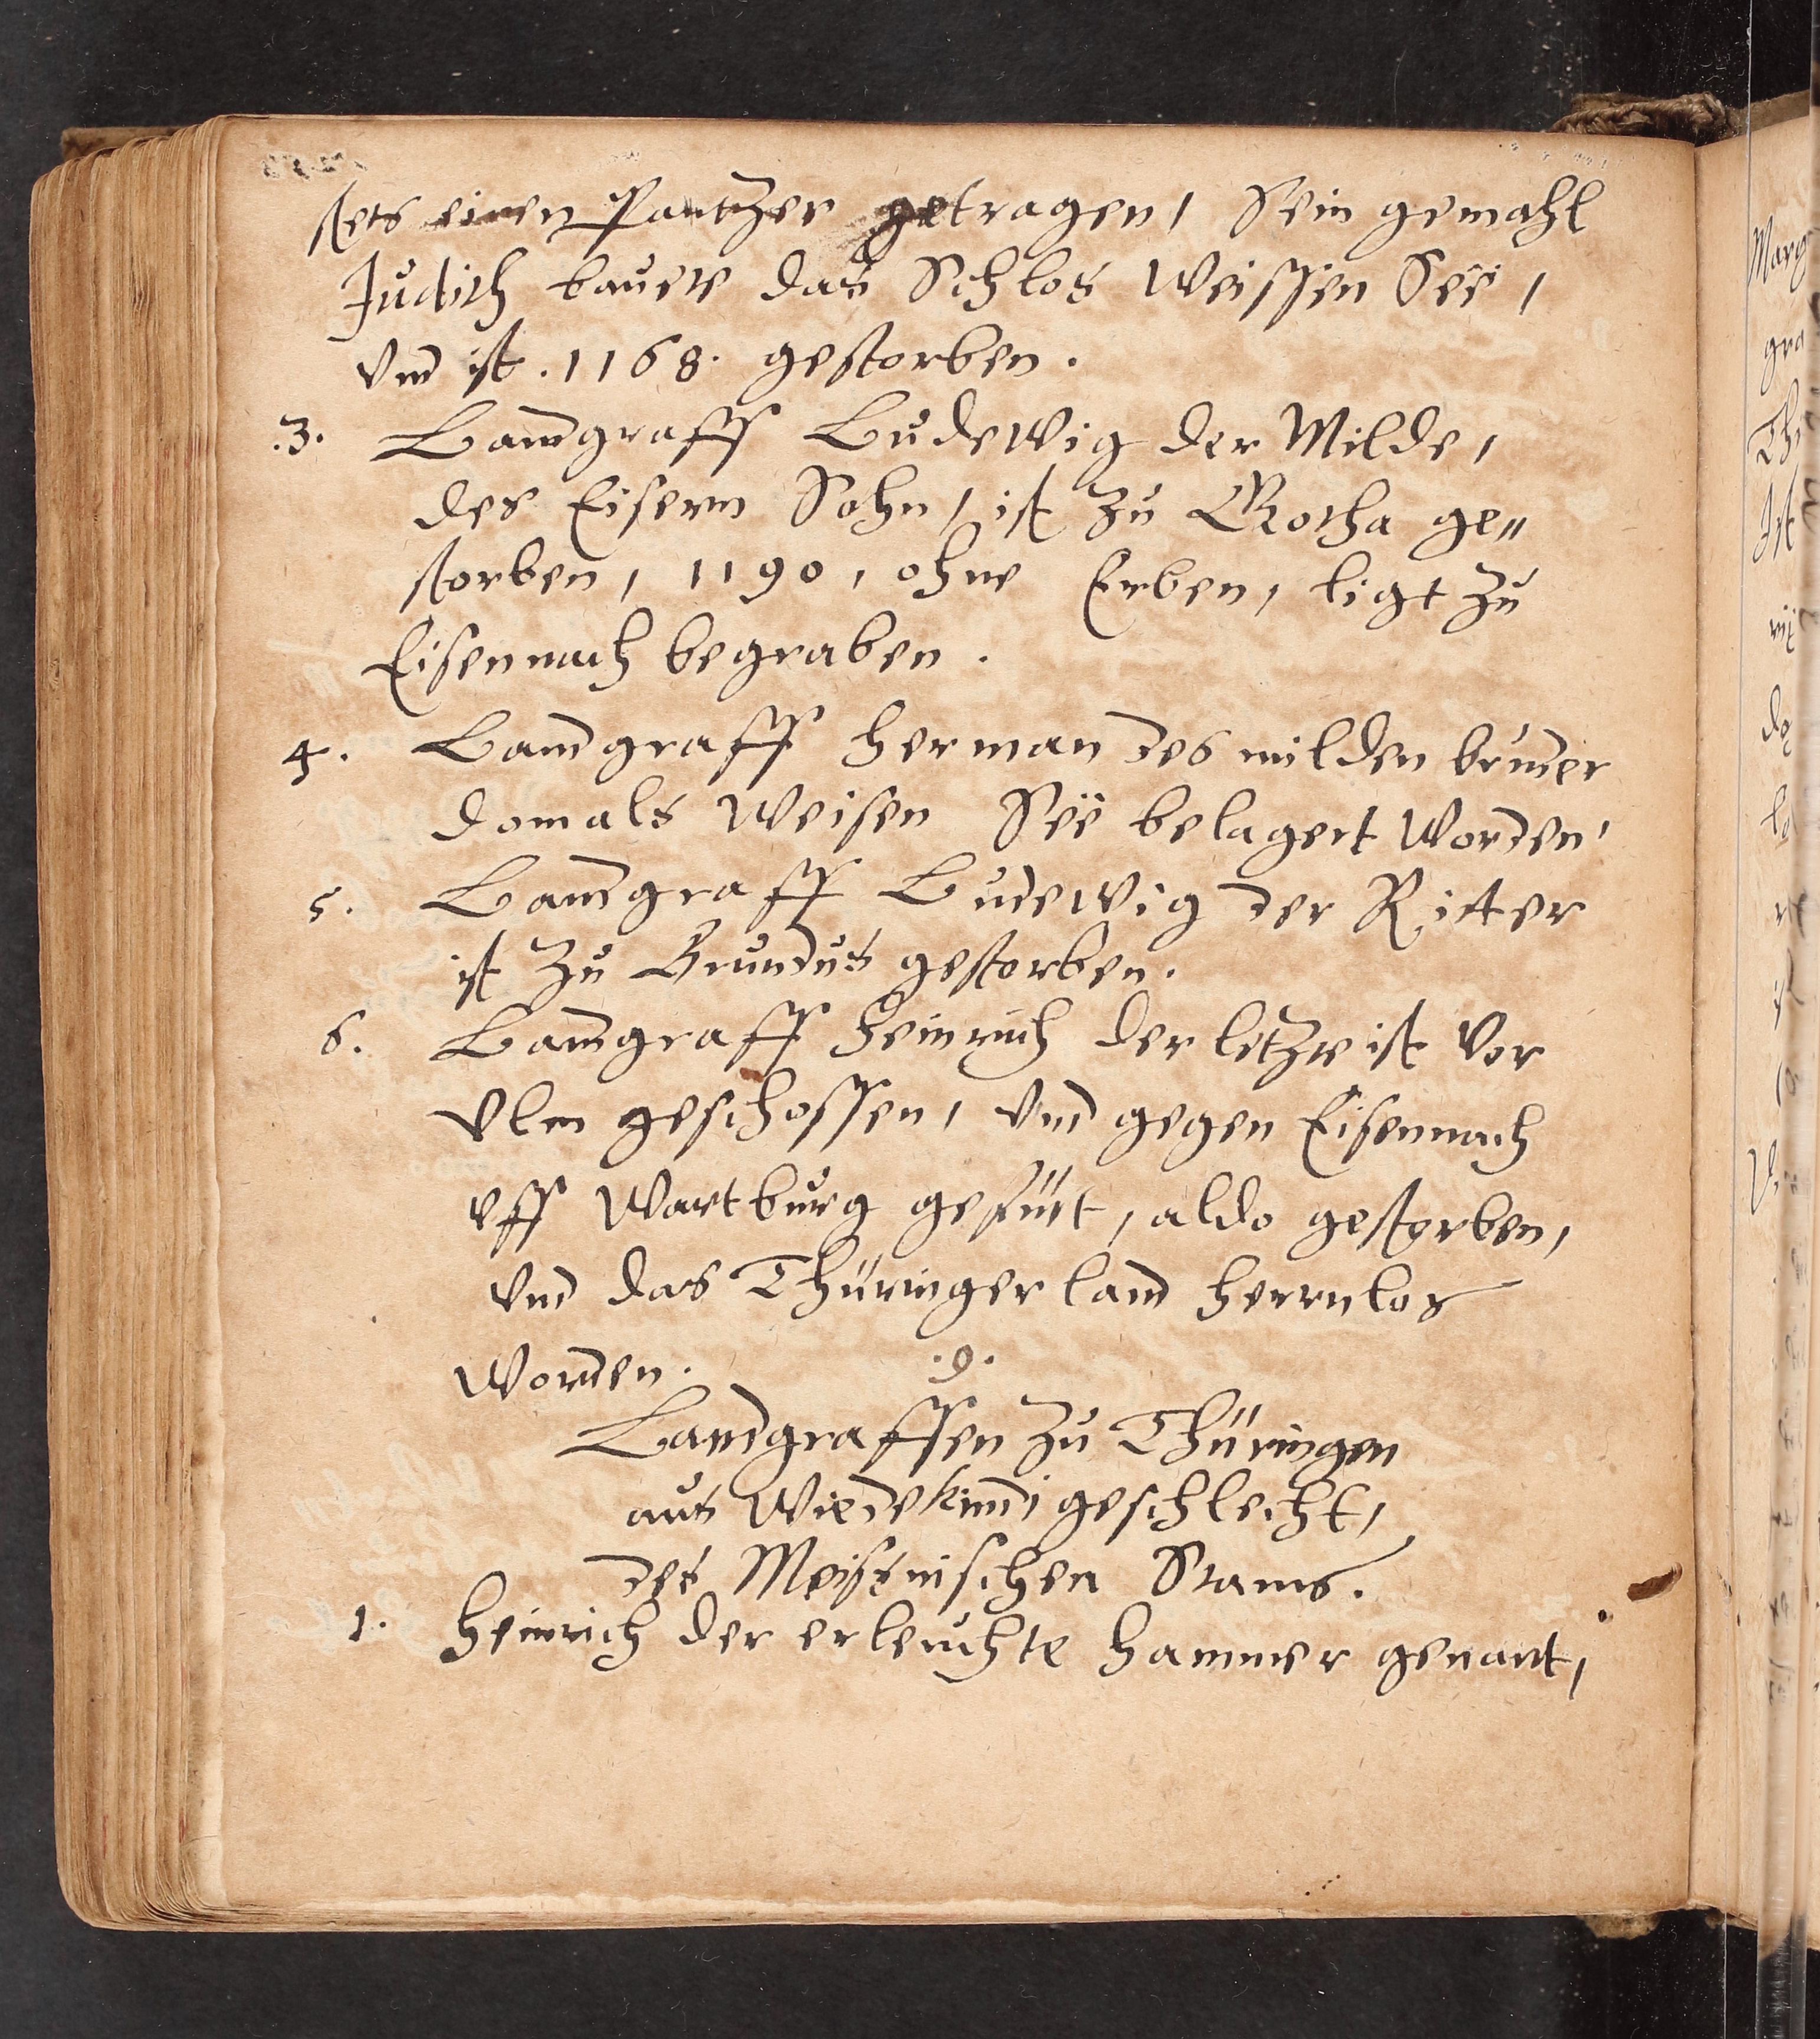 stets einen Pantzer getragen, Sein gemahl
Judith bauete das Schlos Weissen See,
vnd ist .1168. gestorben.
.3. Landgraff Ludewig der Milde,
des Eisern Sohn, ist zu Gotha ge„
storben, 1190, ohne Erben, ligt zu
Eisennach begraben.
4. Landgraff Herman des milden bruder
domals Weisen See belagert worden,
5. Landgraff Ludewig der Ritter
ist zu Brundus gestorben.
6. Landgraff Heinrich der letzte ist vor
Vlm geschossen, vnd gegen Eisennach
vff Wartburg gefürt, aldo gestorben,
vnd das Thüringer land herrnlos
worden. .9.
Landgraffen zu Thüringen
aus Wiedekindi geschlecht,
des Meisnischen Stams.
1. Heinrich der erleuchte Hammer genant,
Marg
gra
Th
Ist